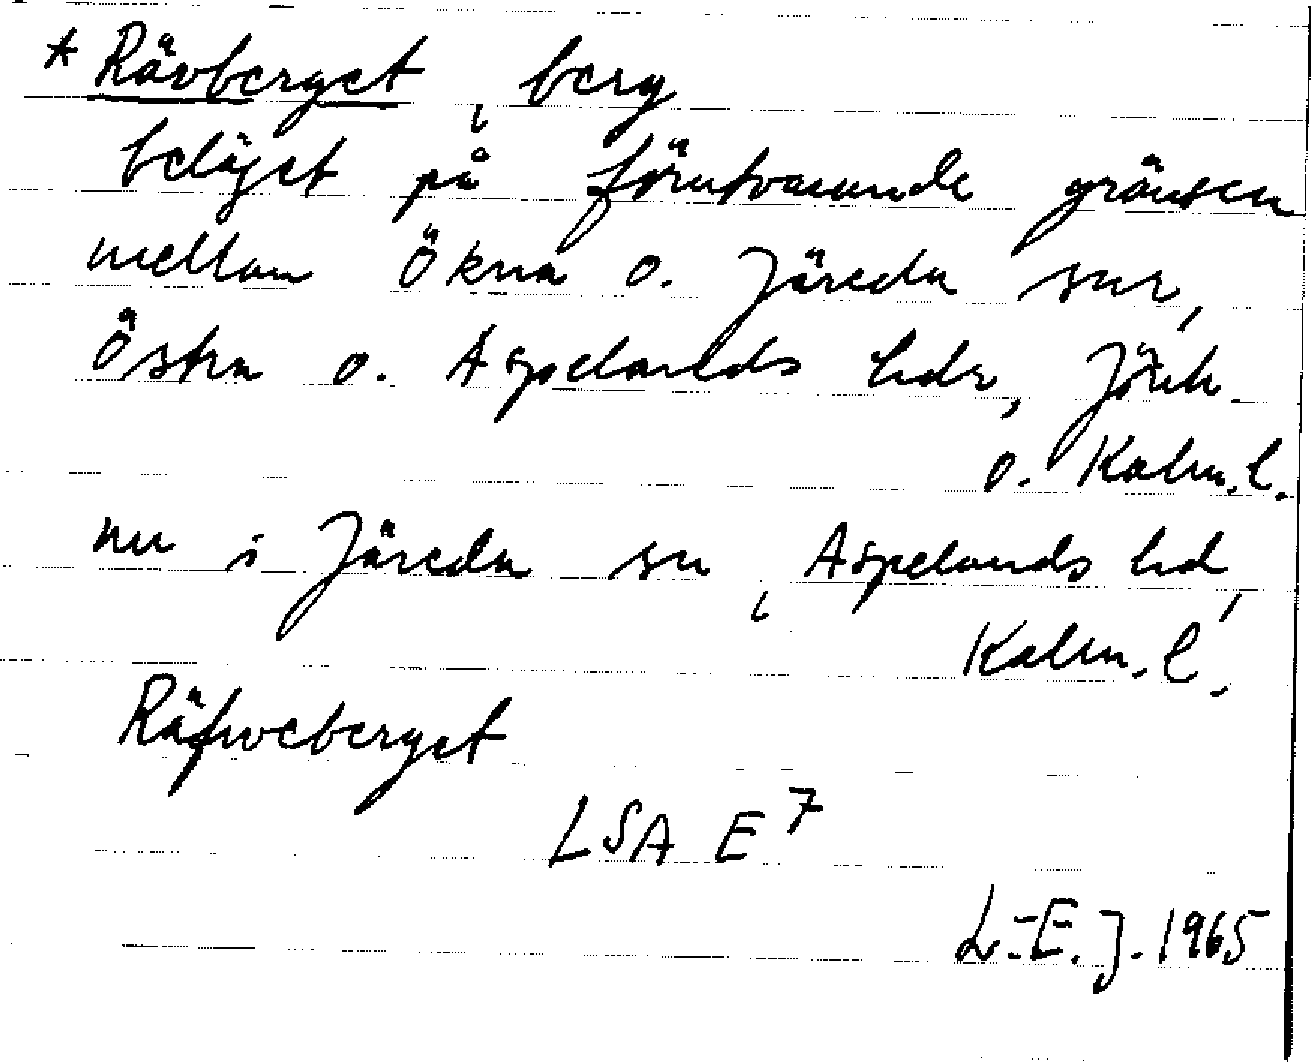 * Rävberget, berg
beläget på förutvarande gränsen
mellan Ökna o. Järeda snr,
Östra o. Aspelands hdr, Jönk.
o. Kalm. l.
nu i Järeda sn, Aspelands hd,
Kalm. l.
Räfweberget
LSA E7
L.-E. J. 1965